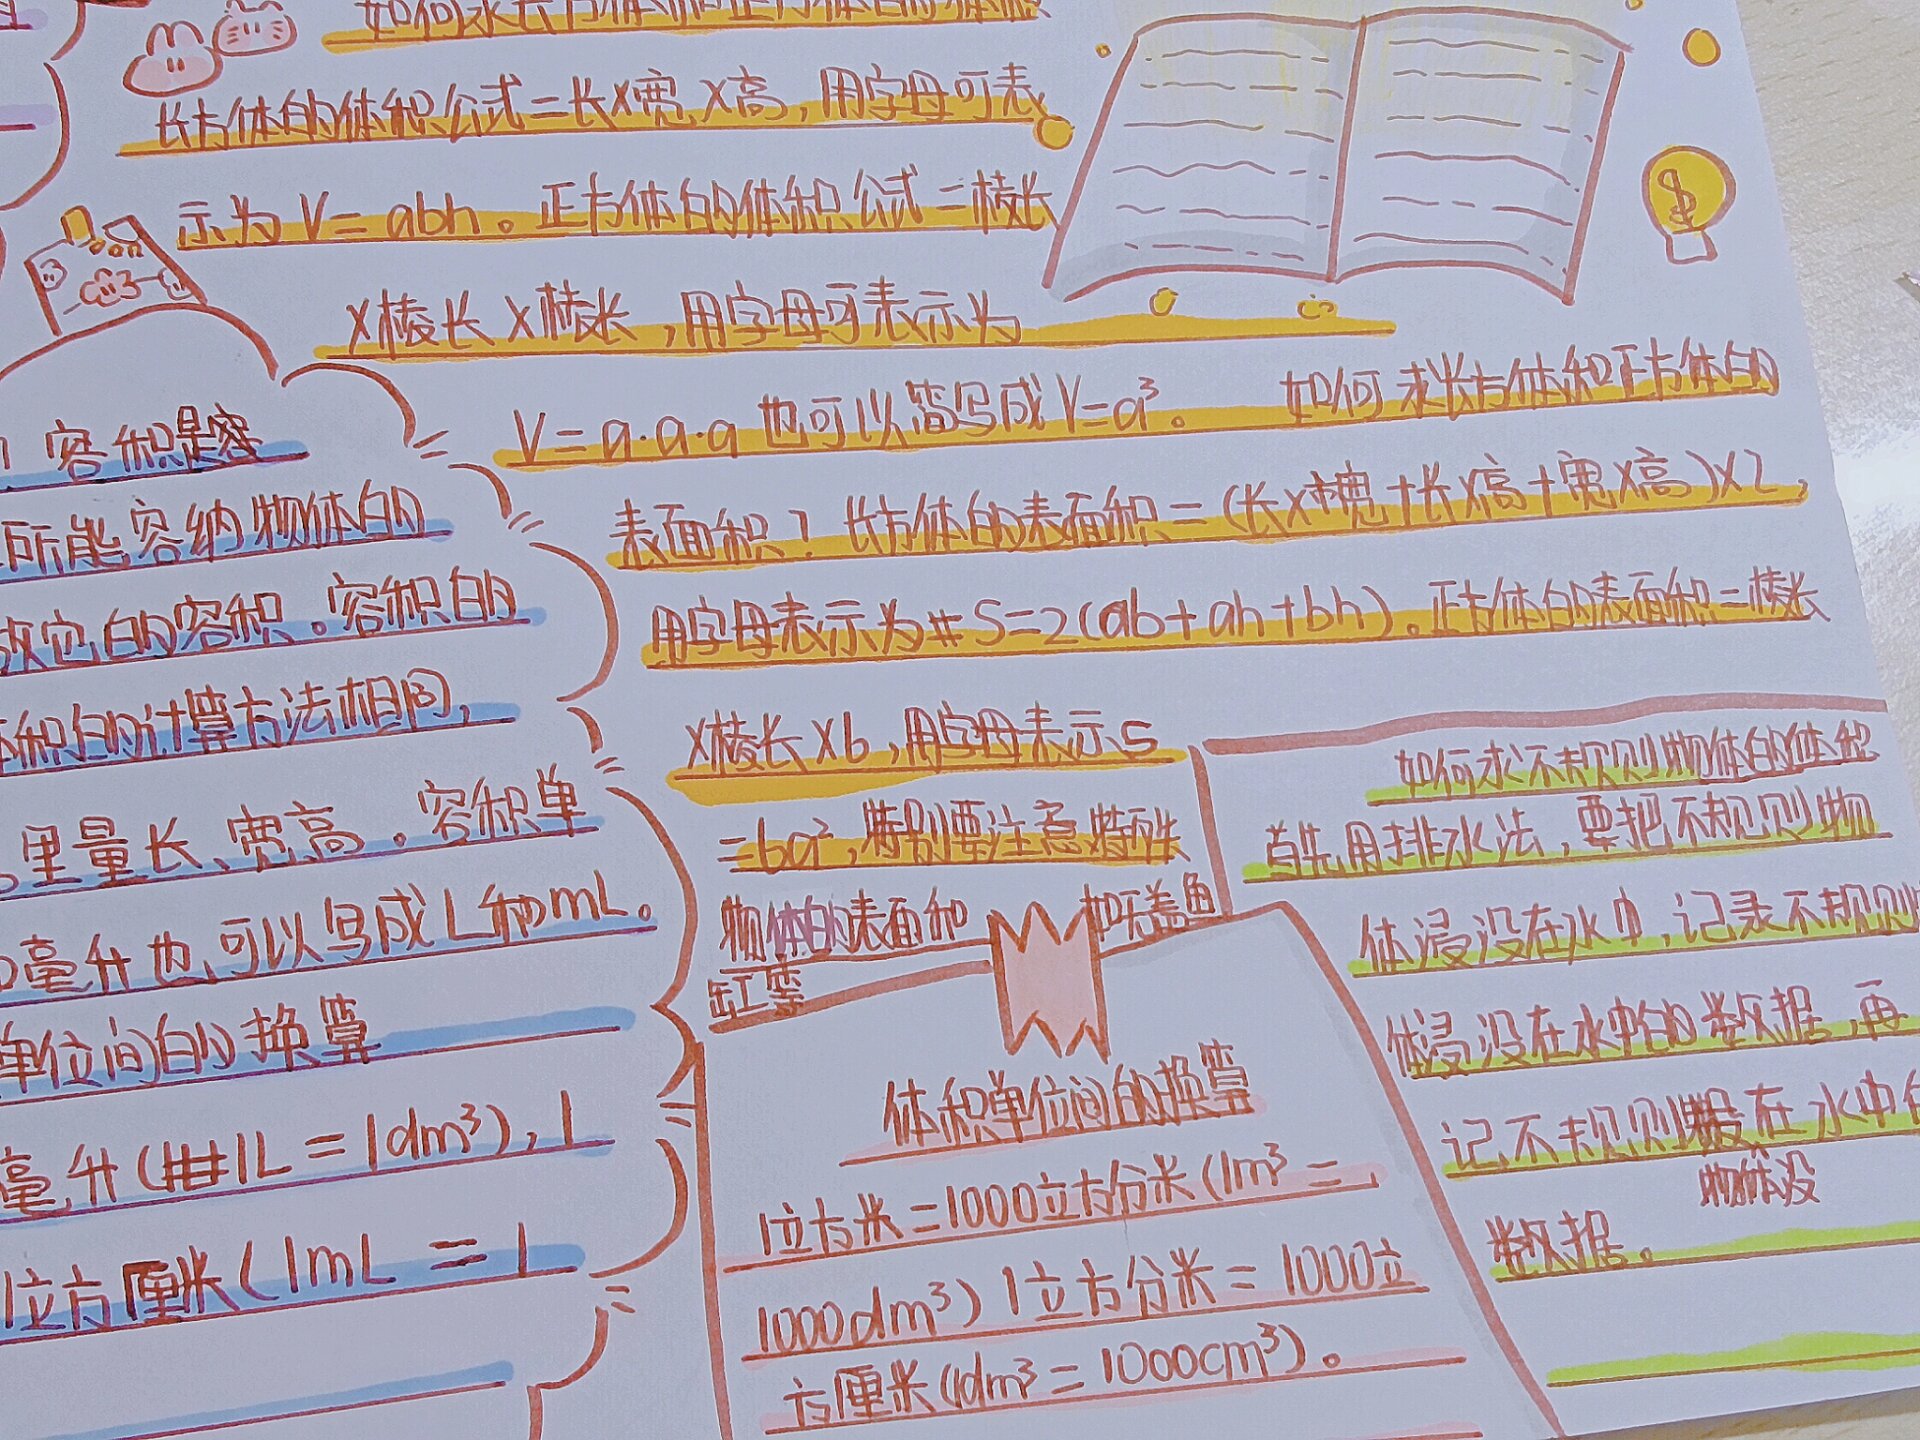 如何求长方体和正方体的体积
长方体的体积公式=长×宽×高,用字母可表
示为V=abh。正方体的体积公式=棱长
×棱长×棱长,用字母可表示为
V=a·a·a也可以简写成V=a³。 如何求长方体和正方体的
表面积?长方体的表面积=(长×宽+长×高+宽×高)×2,
用字母表示为S=2(ab+ah+bh)。正方体的表面积=棱长
×棱长×6,用字母表示S
=6a²,特别要注意特殊
物体的表面积 如无盖鱼
缸等
容积是容
所能容纳物体的
它的容积。容积的
积的计算方法相同,
里量长、宽、高。容积单
毫升也可以写成L和mL。
单位间的换算
毫升(1L=1dm³),1
立方厘米(1mL=1
体积单位间的换算
1立方米=1000立方分米(1m³=
1000dm³)1立方分米=1000立
方厘米(1dm³=1000cm³)。
如何求不规则物体的体积
首先用排水法,要把不规则物
体浸没在水中,记录不规则
体浸没在水中的数据,再
记不规则 在水中
物体没
数据。